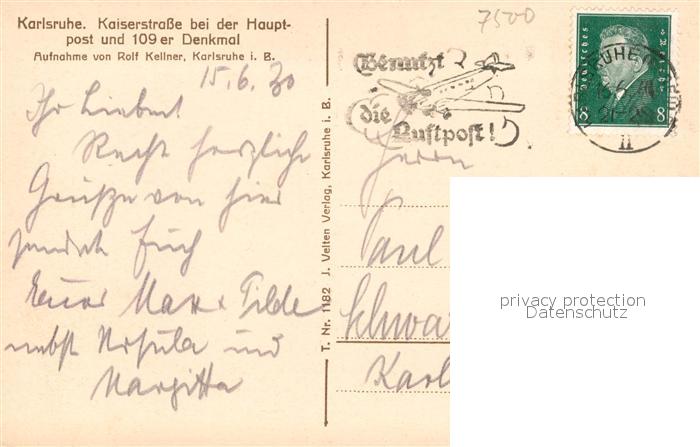 Karlsruhe. Kaiserstraße bei der Haupt-
post und 109er Denkmal
Aufnahme von Rolf Kellner, Karlsruhe i. B.
15.6.30
Ihr Lieben!
Recht herzliche
Grüße von hier
sendet Euch
Euer Max + Tilde
nebst Ursula und
Margitta
T. Nr. 1182 J. Velten Verlag, Karlsruhe i. B.
7500
Benutzt
die
Luftpost!
Deutsches Reich
8 8
II
Herrn
Paul
Schwa
Karl
privacy protection
Datenschutz